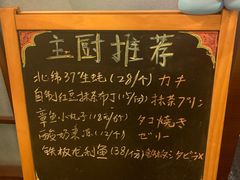 主厨推荐
北纬37°生蚝(29/个) カキ
自制红豆抹茶布丁(15/份) 抹茶プリン
章鱼小丸子(18元/6个) タコ焼き
酸奶果冻(12/个) ゼリー
铁板龙利鱼(38/份)